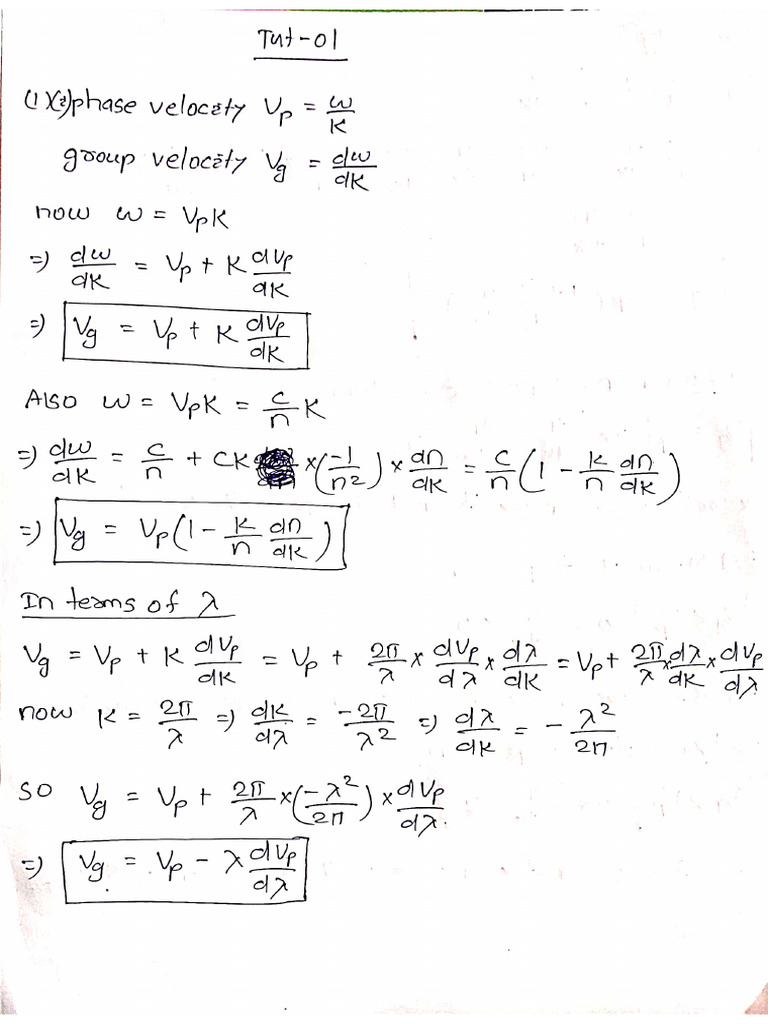 Tut-01
(1)(i) phase velocity Vp = ω/K
group velocity Vg = dω/dK
now ω = VpK
=> dω/dK = Vp + K dVp/dK
=> Vg = Vp + K dVp/dK
Also ω = VpK = c/n K
=> dω/dK = c/n + CK × (-1/n²) × dn/dK = c/n (1 - K/n dn/dK)
=> Vg = Vp(1 - K/n dn/dK)
In terms of λ
Vg = Vp + K dVp/dK = Vp + 2π/λ × dVp/dλ × dλ/dK = Vp + 2π/λ × dλ/dK × dVp/dλ
now K = 2π/λ => dK/dλ = -2π/λ² => dλ/dK = - λ²/2π
so Vg = Vp + 2π/λ × (-λ²/2π) × dVp/dλ
=> Vg = Vp - λ dVp/dλ